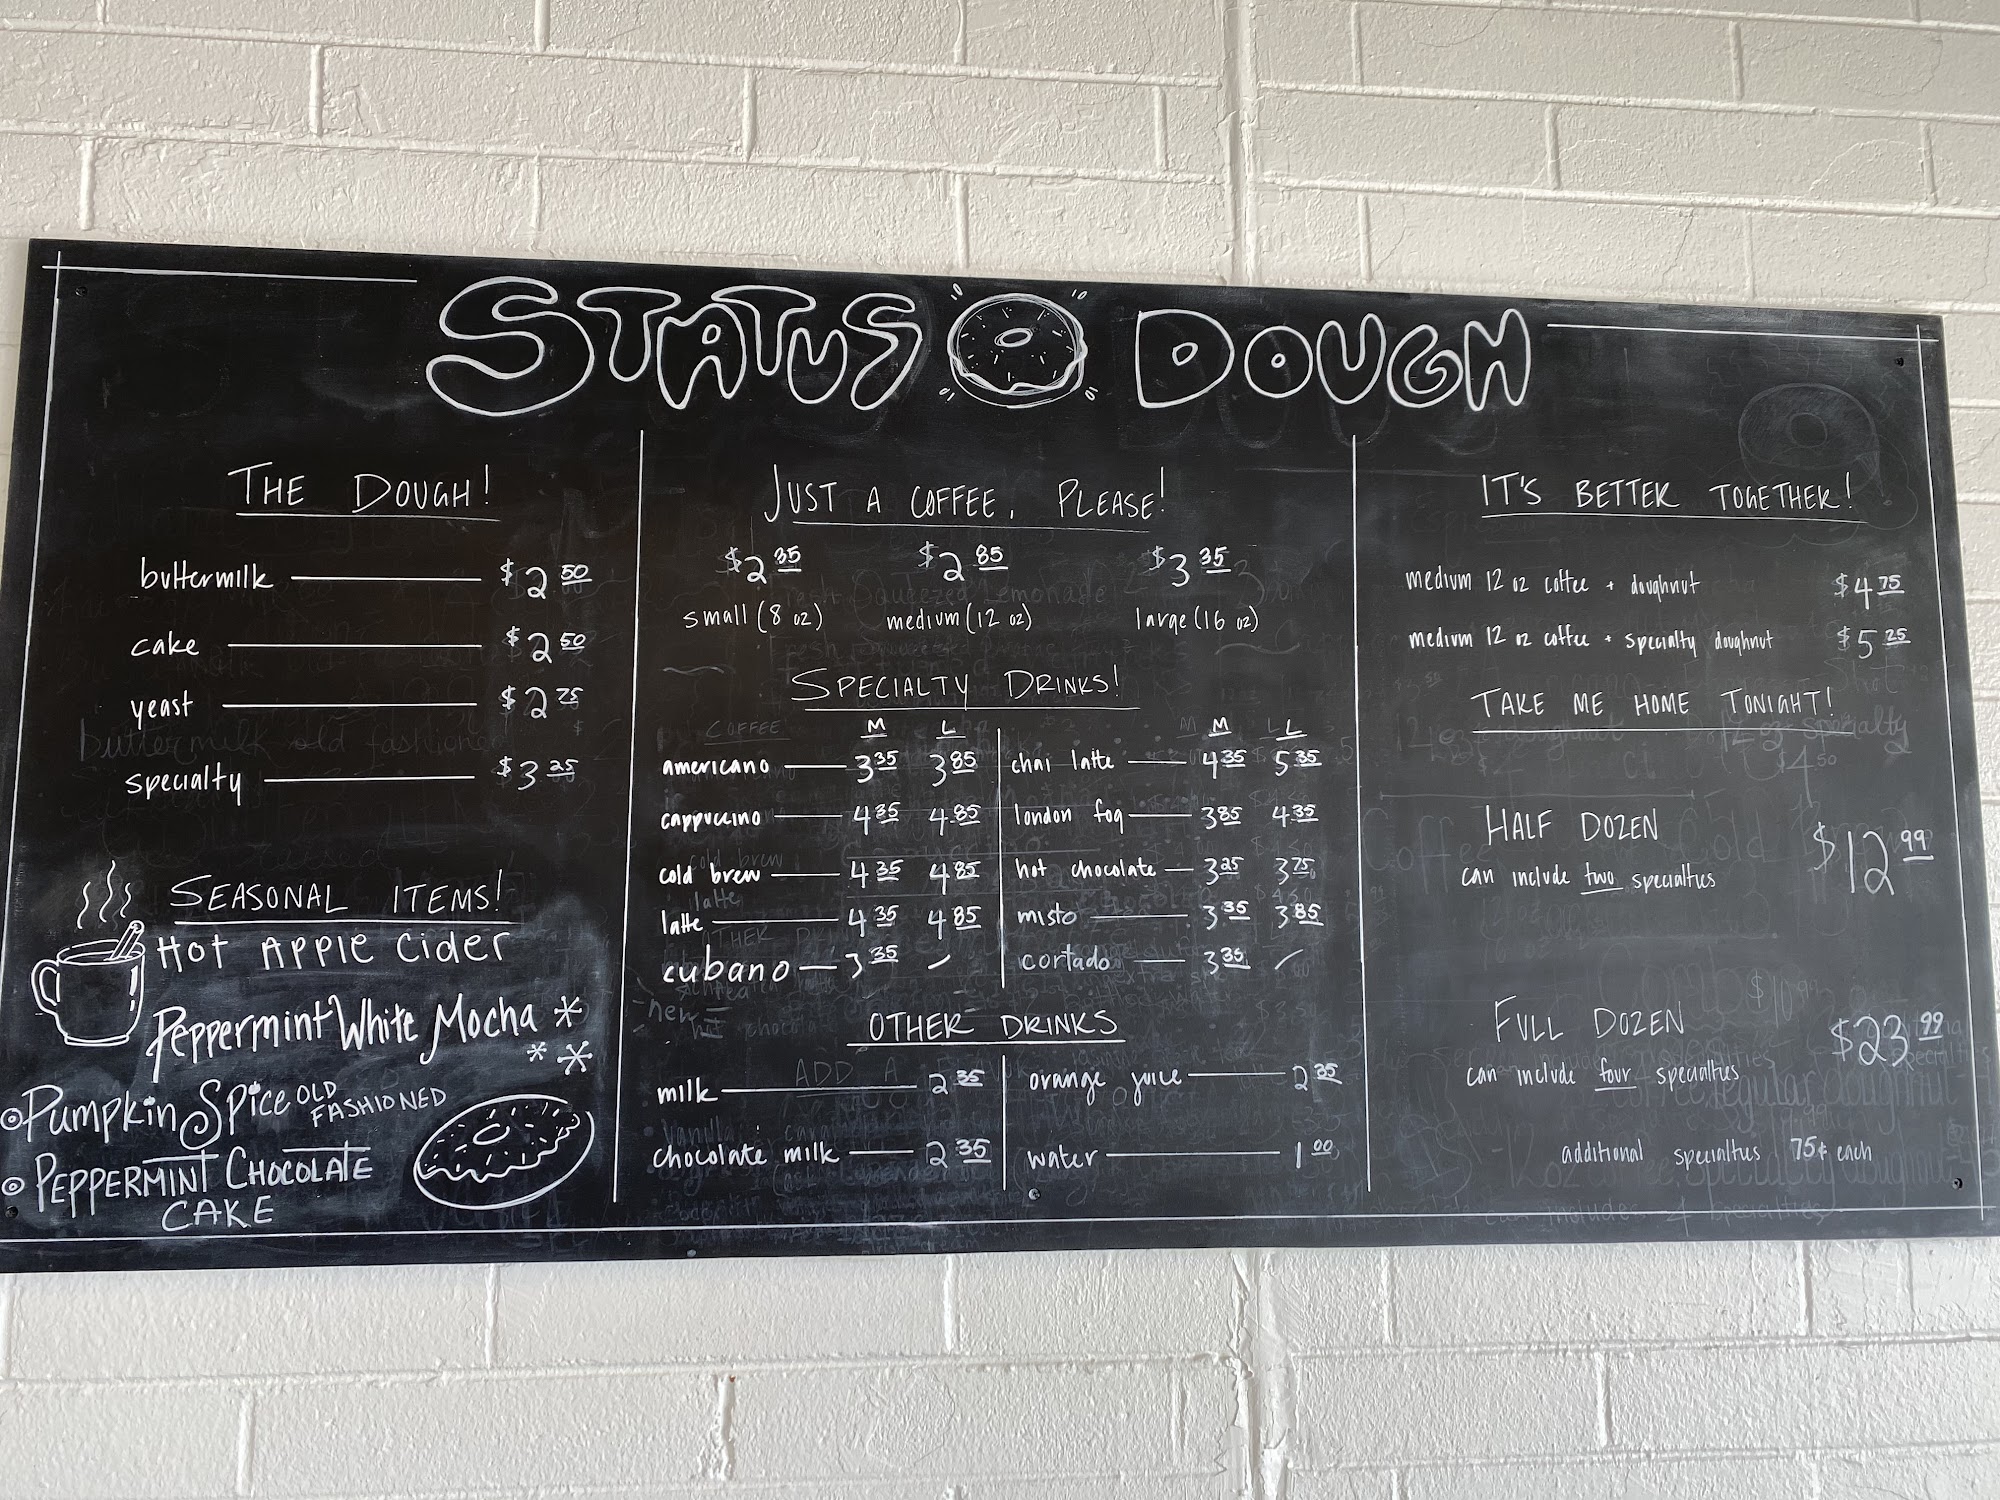 STATUS DOUGH
THE DOUGH!
buttermilk $2.50
cake $2.50
yeast $2.75
specialty $3.25
SEASONAL ITEMS!
HOT APPLE CIDER
Peppermint White Mocha
PUMPKIN SPICE OLD FASHIONED
PEPPERMINT CHOCOLATE
CAKE
JUST A COFFEE, PLEASE!
$2.35 $2.85 $3.35
small (8 oz) medium (12 oz) large (16 oz)
SPECIALTY DRINKS!
COFFEE M L
americano 3.35 3.85
cappuccino 4.35 4.85
cold brew 4.35 4.85
latte 4.35 4.85
cubano 3.35
M L
chai latte 4.35 5.35
london fog 3.85 4.35
hot chocolate 3.25 3.75
misto 3.35 3.85
cortado 3.35
OTHER DRINKS
milk 2.35
chocolate milk 2.35
orange juice 2.35
water 1.00
IT'S BETTER TOGETHER!
medium 12 oz coffee + doughnut $4.75
medium 12 oz coffee + specialty doughnut $5.25
TAKE ME HOME TONIGHT!
HALF DOZEN $12.99
can include two specialties
FULL DOZEN $23.99
can include four specialties
additional specialties 75¢ each